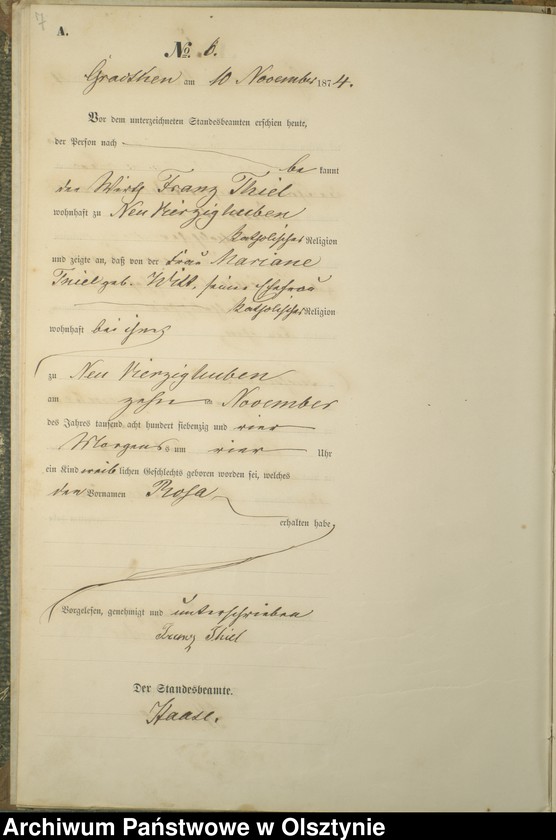 7
A.
No. 6.
am 10 November 1874.
Vor dem unterzeichneten Standesbeamten erschien heute,
der Person nach
be kannt
der Wirth Franz Thiel
wohnhaft zu Neu Vierzighuben
katholischer Religion
und zeigte an, daß von der Frau Mariane
Thiel geb. Witt, seiner Ehefrau
katholischer Religion
wohnhaft bei ihm
zu Neu Vierzighuben
am zehn ten November
des Jahres tausend acht hundert siebenzig und vier
Morgens um vier Uhr
ein Kind weib lichen Geschlechts geboren worden sei, welches
den Vornamen Rosa
erhalten habe.
Vorgelesen, genehmigt und unterschrieben
Franz Thiel
Der Standesbeamte.
Haase.
Archiwum Państwowe w Olsztynie